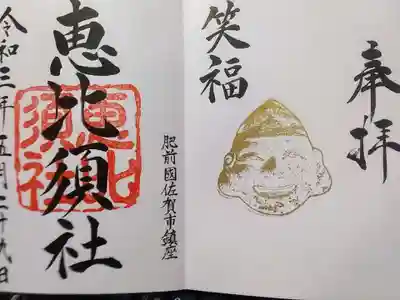 奉拝
笑福
肥前國佐賀市鎮座
恵比須社
恵比須社
令和三年五月二十九日